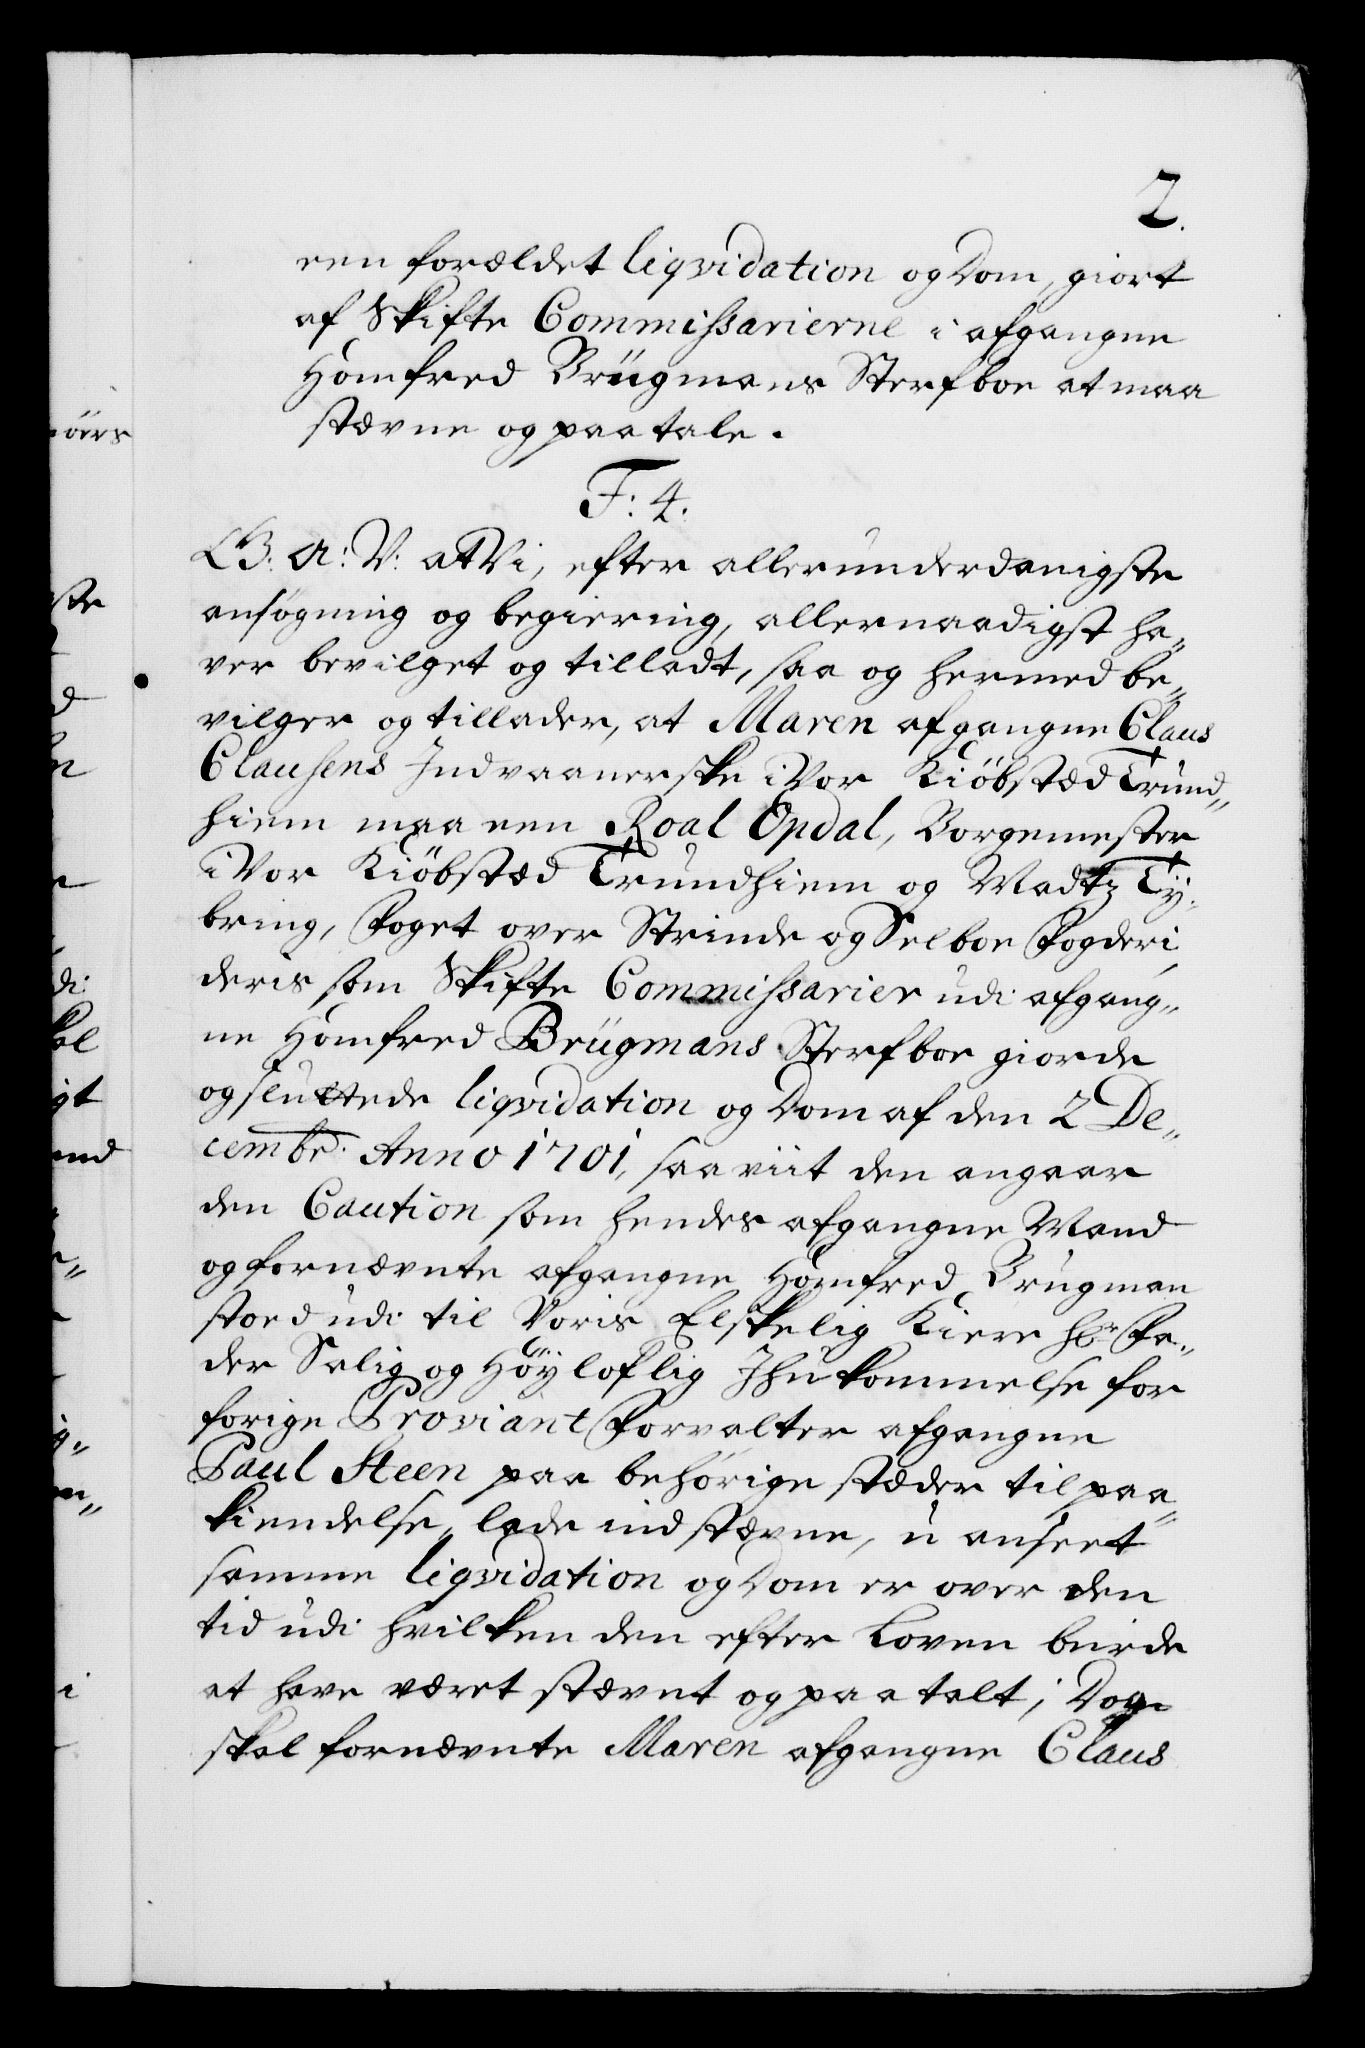 2.
een forældet liqvidation og Dom, giort
af Skifte Commissarierne i afgangne
Homfred Brügmans Sterfboe at maa
stævne og paatale.
F: 4.
G. A: V: at Vi, efter allerunderdanigste
ansøgning og begiering, allernaadigst ha„
ver bevilget og tilladt, saa og hermed be„
vilger og tillader, at Maren afgangne Claus
Clausens Indvaanerske i Vor Kiöbstæd Trund„
hiem maa een Roal Opdal, Borgemester
i Vor Kiöbstæd Trundhiem og Madtz Ty„
bring, Foget over Strinde og Selboe Fogderi
deris som Skifte Commissarier udi afgang„
ne Homfred Brügmans Sterfboe giorde
og sluttede liqvidation og Dom af den 2 De„
cembr. Anno 1701, saa viit den angaar
den Caution som hendes afgangne Mand
og fornævnte afgangne Homfred Brugman
stoed udi til Voris Elskelig Kiere Hr Fa„
der Salig og Höyloflig Ihukommelse for
forige Proviant Forvalter afgangne
Paul Steen paa behörige stæder til paa„
kiendelse, lade indstævne, u anseet
samme liqvidation og Dom er over den
tid udi hvilken den efter Loven burde
at have været stævnt og paatalt; Dog
skal fornævnte Maren afgangne Claus